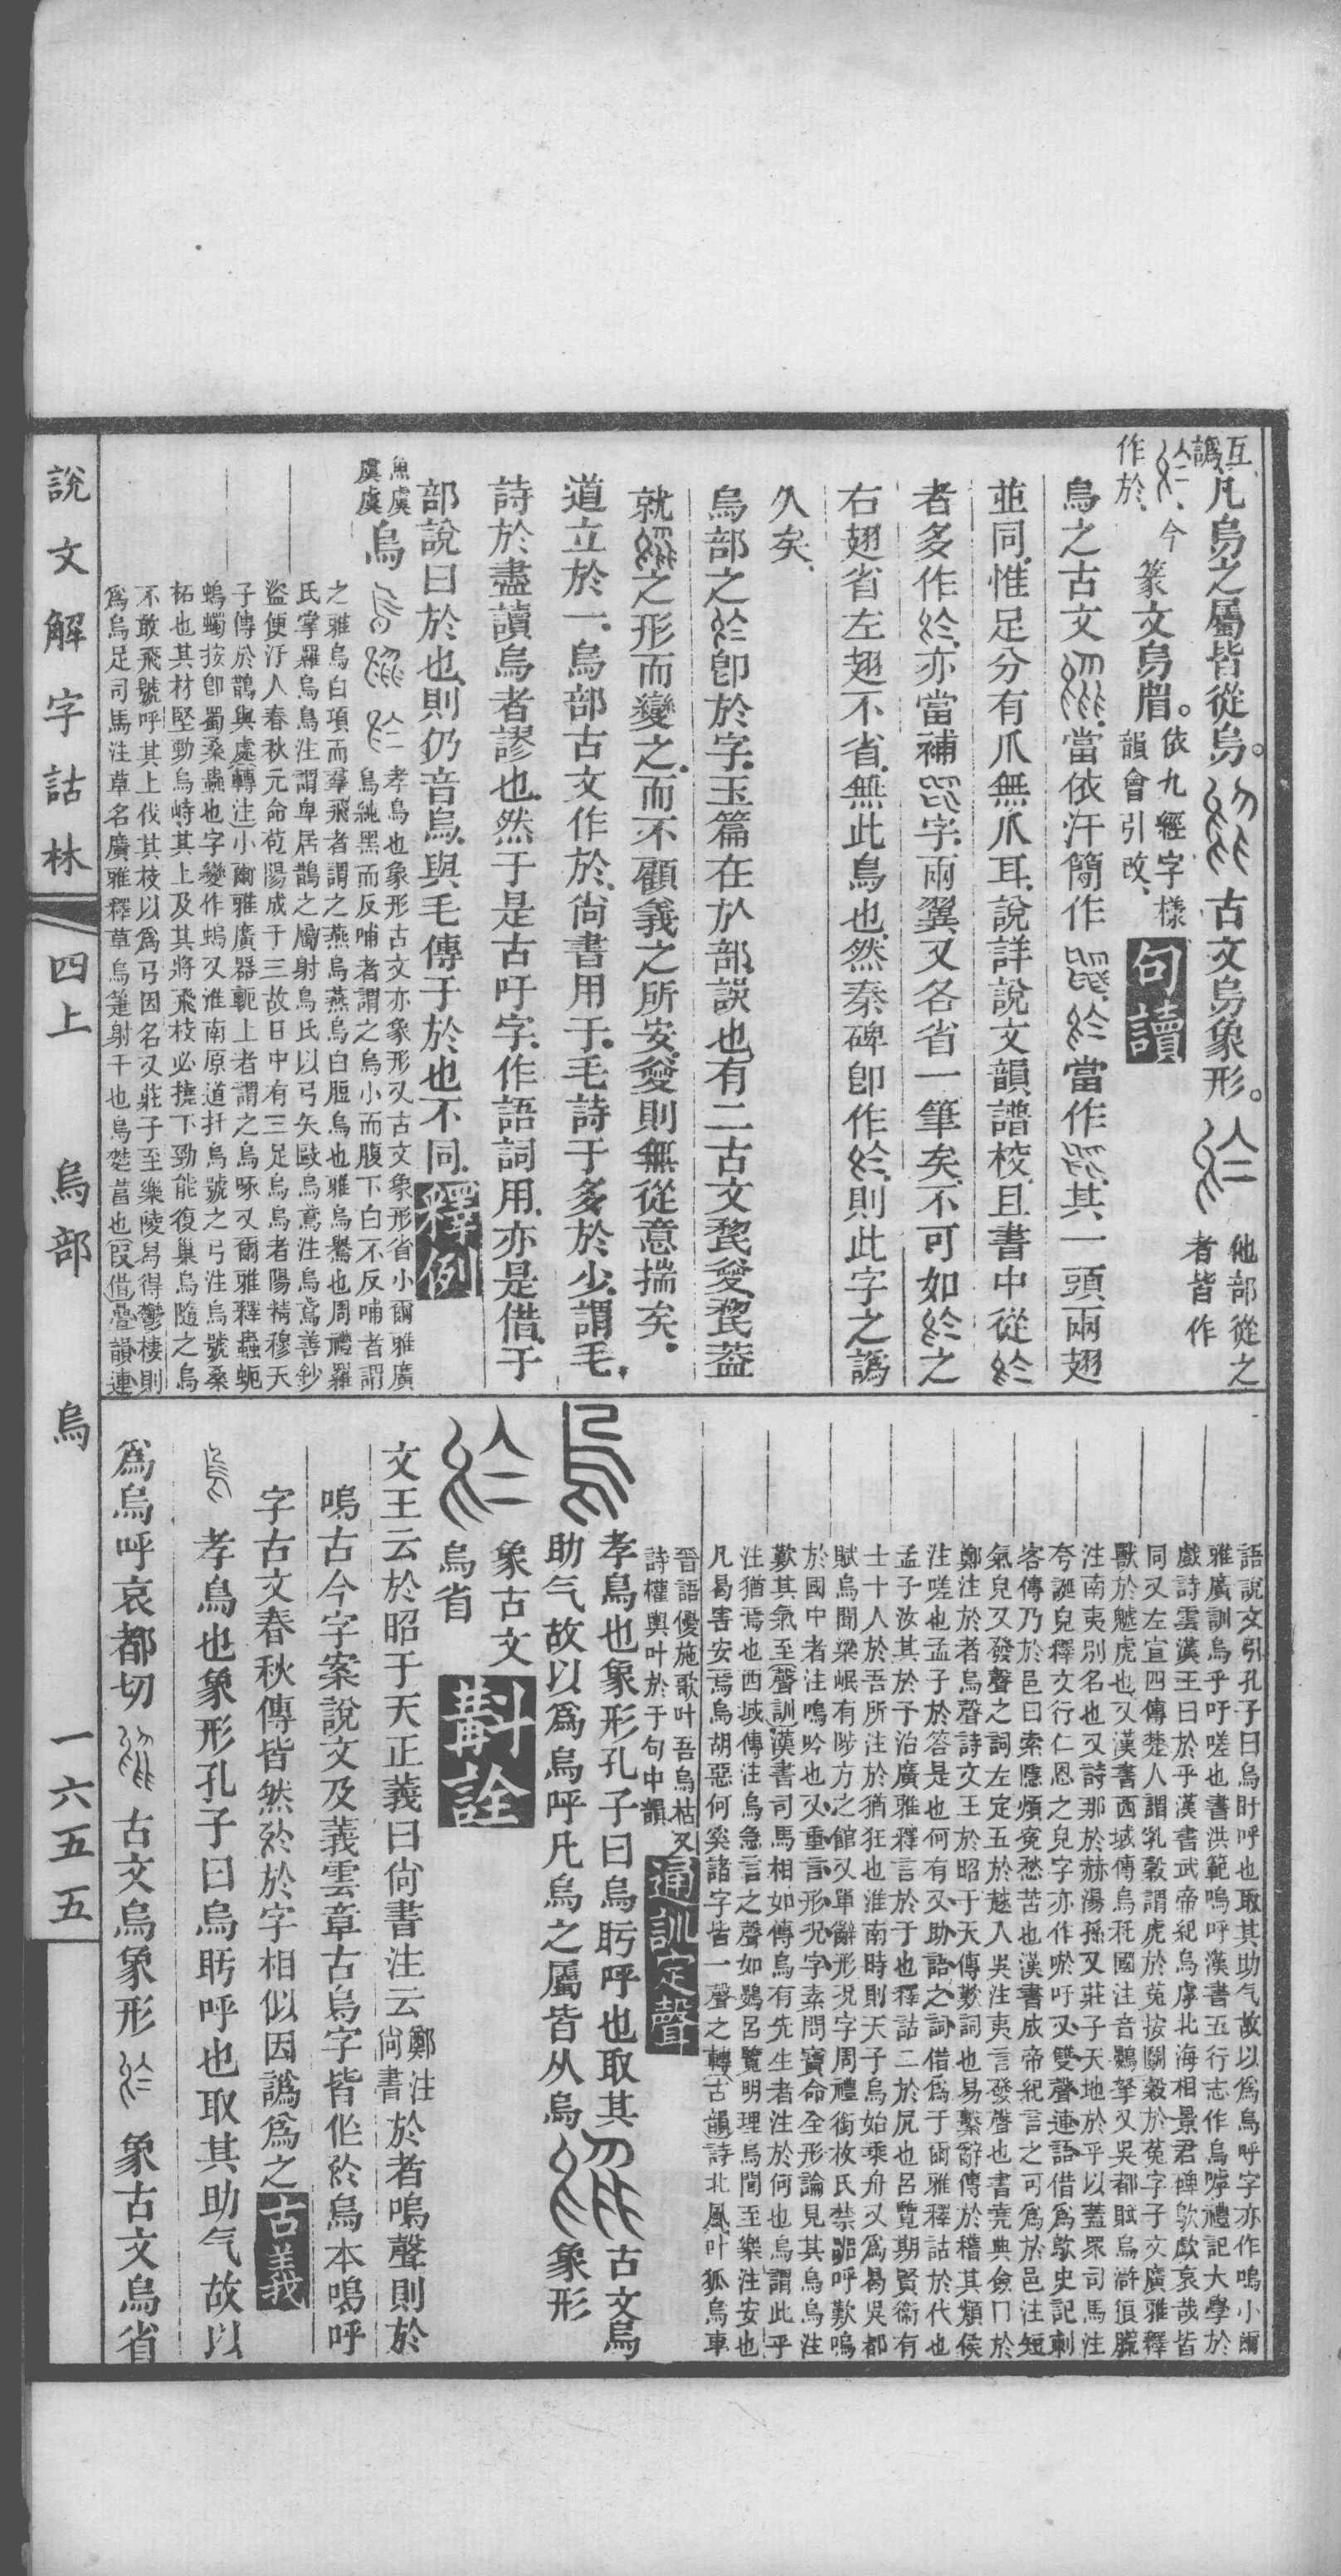 互譌、凡烏之屬皆從烏。古文烏象形。他部從之者皆作
今作於、篆文烏省。依九經字樣韻會引改、句讀
鳥之古文當依汗簡作當作其一頭兩翅
並同惟足分有爪無爪耳說詳說文韻譜校且書中從
者多作亦當補字兩翼又各省一筆矣不可如之
右翅省左翅不省無此鳥也然秦碑卽作則此字之譌
久矣、
烏部之卽於字玉篇在㫃部誤也有二古文蓋
就之形而變之而不顧義之所安變則無從意揣矣
道立於一烏部古文作於尙書用于毛詩于多於少謂毛
詩於盡讀烏者謬也然于是古吁字作語詞用亦是借于
部說曰於也則仍音烏與毛傳于於也不同釋例
魚虞虞虞烏孝鳥也象形古文亦象形又古文象形省小爾雅廣
烏純黑而反哺者謂之烏小而腹下白不反哺者謂
之雅烏白項而羣飛者謂之燕烏燕烏白脰烏也雅烏鸒也周禮羅
氏掌羅烏鳥注謂卑居鵲之屬射鳥氏以弓矢歐烏鳶注烏鳶善鈔
盜便汙人春秋元命苞陽成于三故日中有三足烏烏者陽精穆天
子傳於鵲與處轉注小爾雅廣器軛上者謂之烏啄又爾雅釋蟲蚅
蠋按卽蜀桑蟲也字變作又淮南原道扞烏號之弓注烏號桑
柘也其材堅勁烏峙其上及其將飛枝必橈下勁能復巢烏隨之烏
不敢飛號呼其上伐其枝以爲弓因名又莊子至樂陵舄得鬱棲則
爲烏足司馬注草名廣雅釋草烏蓮射干也烏葍也叚借疊韻連
語說文引孔子曰烏盱呼也取其助气故以爲烏呼字亦作嗚小爾
雅廣訓烏乎吁嗟也書洪範嗚呼漢書五行志作烏嘑禮記大學於
戲詩雲漢王曰於乎漢書武帝紀烏虖北海相景君碑歍歔哀哉皆
同又左宣四傳楚人謂乳穀謂虎於菟按鬭穀於菟字子文廣雅釋
獸於䖘虎也又漢書西域傳烏秅國注音鷃拏又吳都賦烏滸狼𦠄
注南夷別名也又詩那於赫湯孫又莊子天地於乎以蓋眾司馬注
夸誕皃釋文行仁恩之皃字亦作唹吁又雙聲連語借爲歍史記刺
客傳乃於邑曰索隱煩冤愁苦也漢書成帝紀言之可爲於邑注短
氣皃又發聲之詞左定五於越入吳注夷言發聲也書堯典僉曰於
鄭注於者烏聲詩文王於昭于天傳歎詞也易繫辭傳於稽其類侯
注嗟也孟子於答是也何有又助語之詞借爲于爾雅釋詁於代也
孟子汝其於予治廣雅釋言於于也釋詁二於凥也呂覽期賢衞有
士十人於吾所注於猶狂也淮南時則天子烏始乘舟又爲曷吳都
賦烏聞梁岷有陟方之館又單辭形況字周禮銜枚氏禁嘂呼歎嗚
於國中者注嗚吟也又重言形況字素問寶命全形論見其烏烏注
歎其氣至聲訓漢書司馬相如傳烏有先生者注於何也烏謂此乎
注猶焉也西域傳注烏急言之聲如鷃呂覽明理烏聞至樂注安也
凡曷害安焉烏胡惡何奚諸字皆一聲之轉古韻詩北風叶狐烏車
晉語優施歌叶吾烏枯又詩權輿叶於于句中韻通訓定聲
孝鳥也象形孔子曰烏盱呼也取其助气故以爲烏呼凡烏之屬皆从烏古文烏象形
象古文烏省斠詮
文王云於昭于天正義曰尙書注云鄭注尙書於者嗚聲則於
嗚古今字案說文及義雲章古烏字皆作於烏本嗚呼
字古文春秋傳皆然於字相似因譌爲之古義
孝鳥也象形孔子曰烏盱呼也取其助气故以
爲烏呼哀都切古文烏象形象古文烏省
說文解字詁林 四上 烏部 烏 一六五五